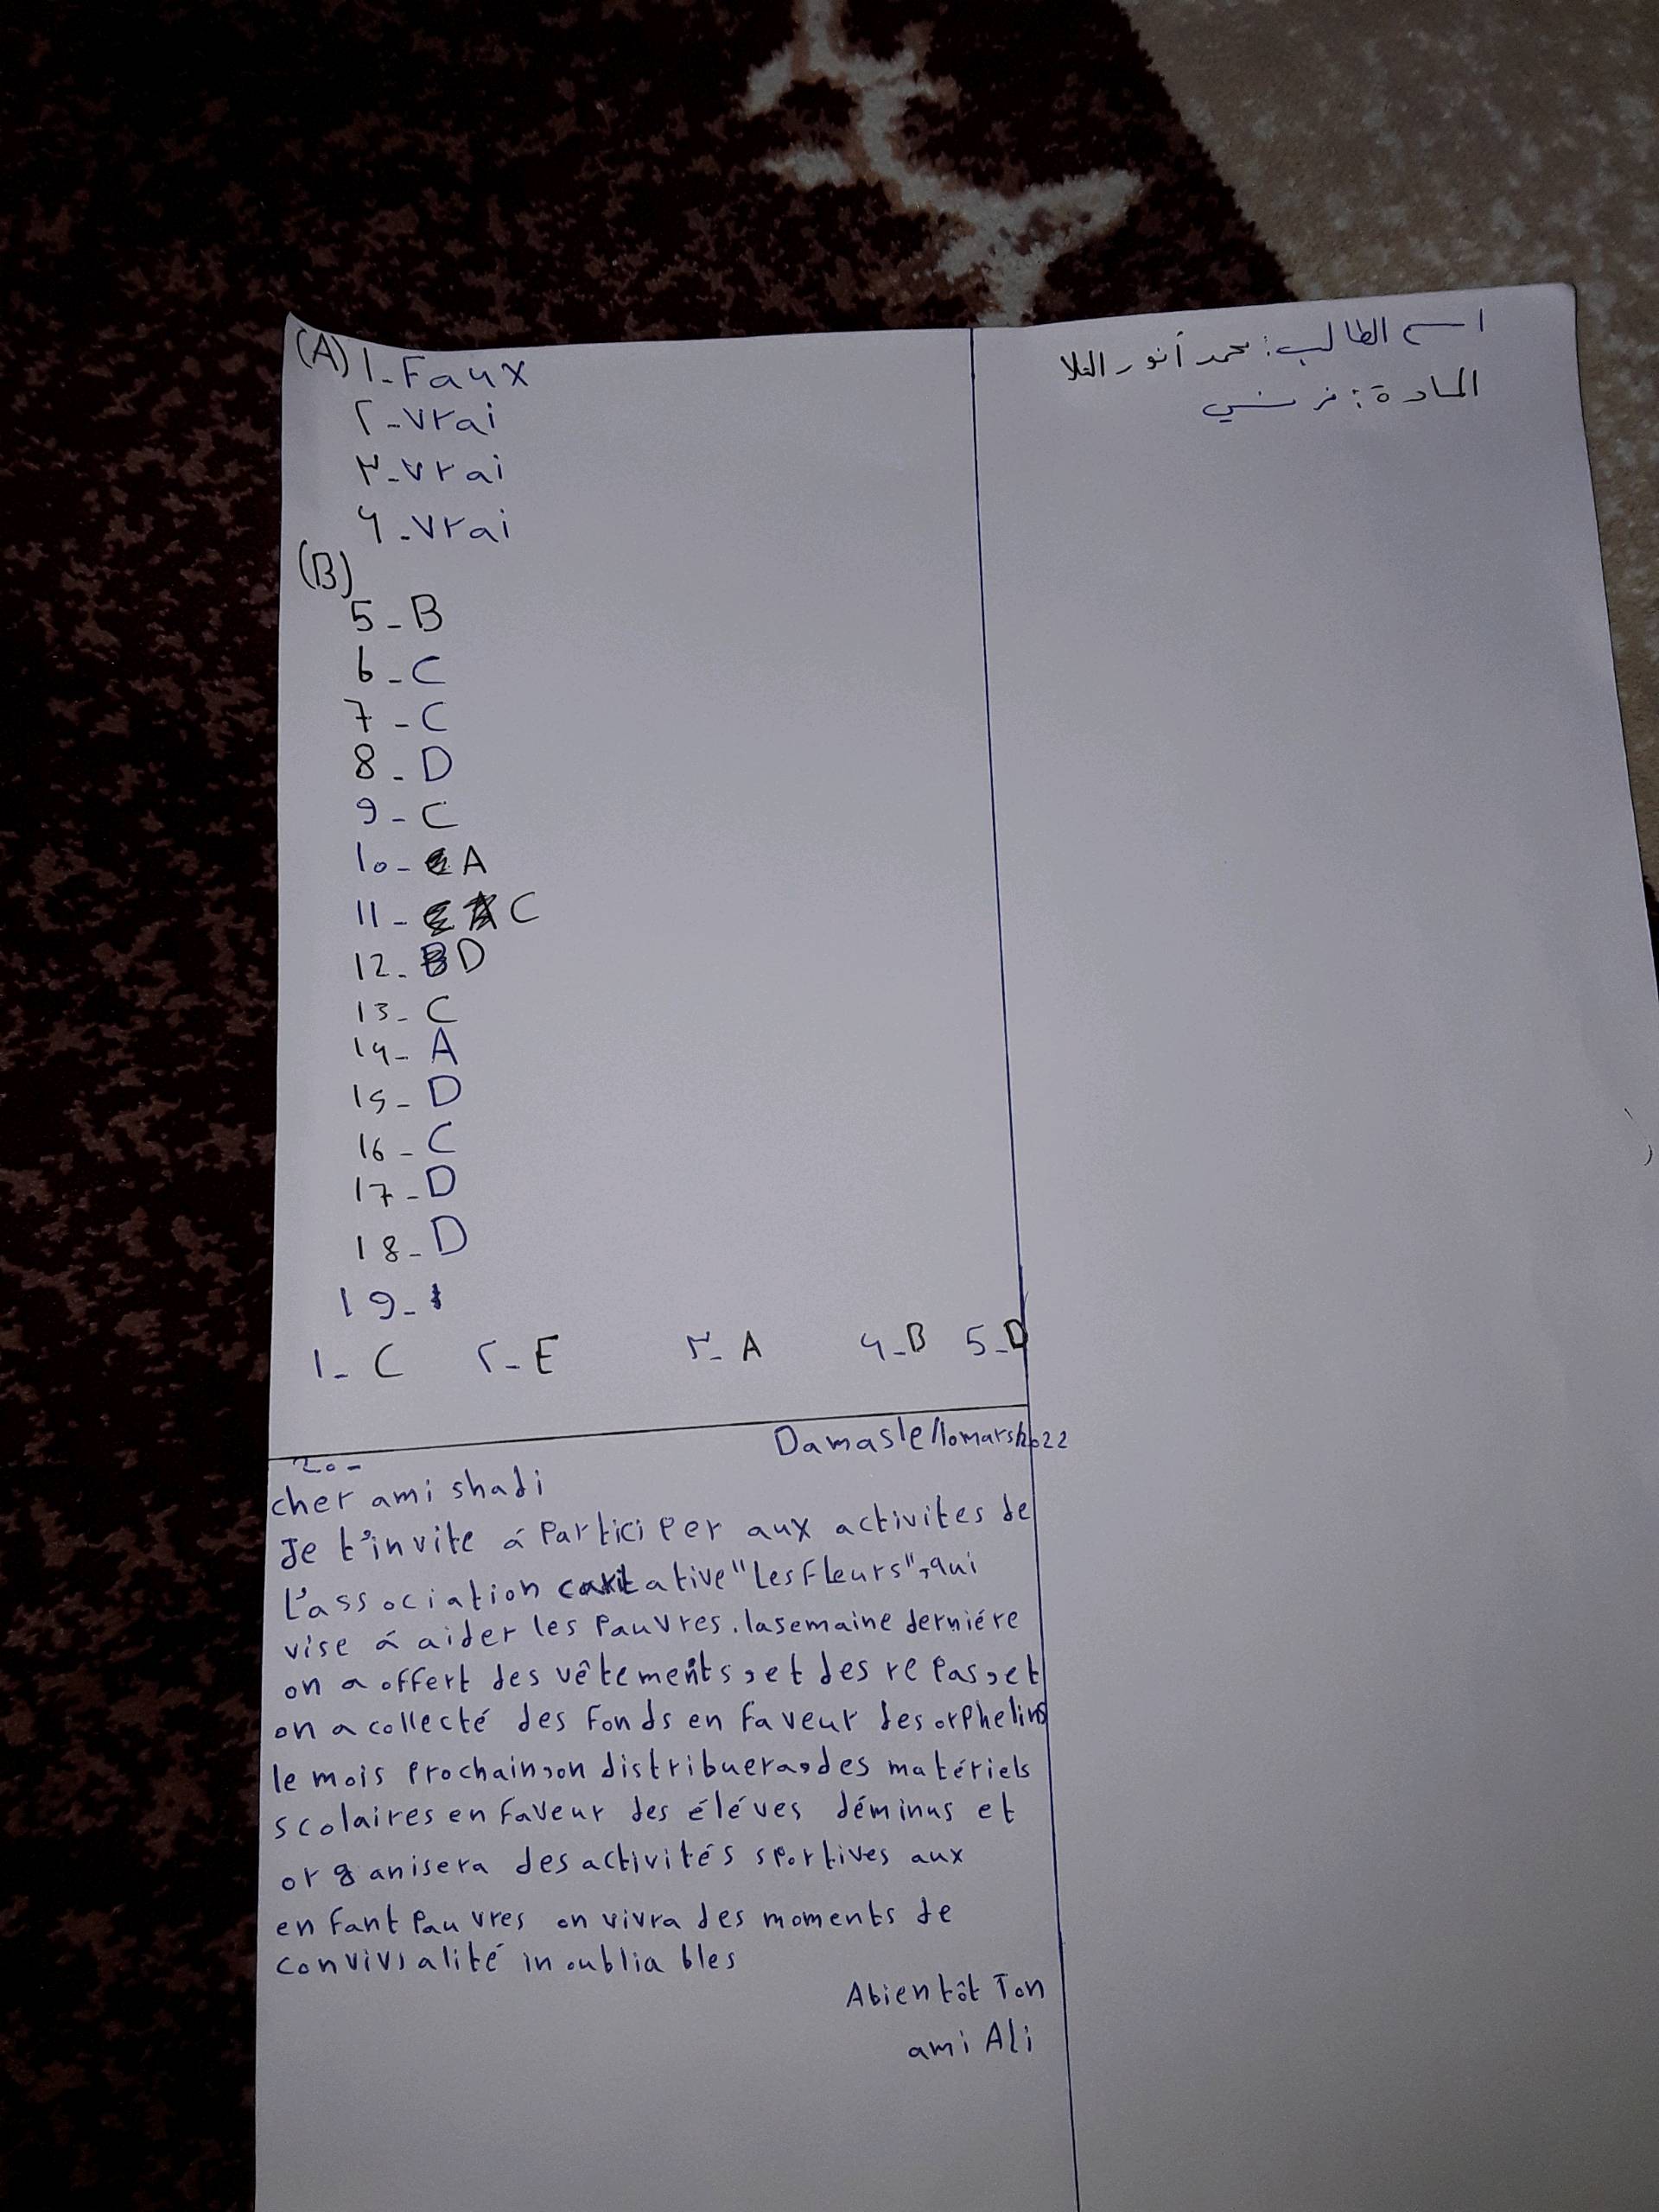 اسم الطالب: محمد أنور الللا
المادة: فرنسي
(A) 1-Faux
٢-vrai
٣-vrai
4-vrai
(B)
5-B
6-C
7-C
8-D
9-C
10-A
11-C
12-D
13-C
14-A
15-D
16-C
17-D
18-D
19-
1-C ٢-E ٣-A 4-B 5-D
Damas le/10 mars/2022
20-
cher ami shadi
Je t'invite á Participer aux activites de
l'association caritative "Les Fleurs", qui
vise á aider les Pauvres. la semaine derniére
on a offert des vêtements, et des repas, et
on a collecté des fonds en faveur des orphelins
le mois Prochain, on distribuera, des matériels
scolaires en faveur des éléves déminus et
organisera des activités sportives aux
enfant Pauvres on vivra des moments de
convivialité inoubliables
Abientôt Ton
ami Ali